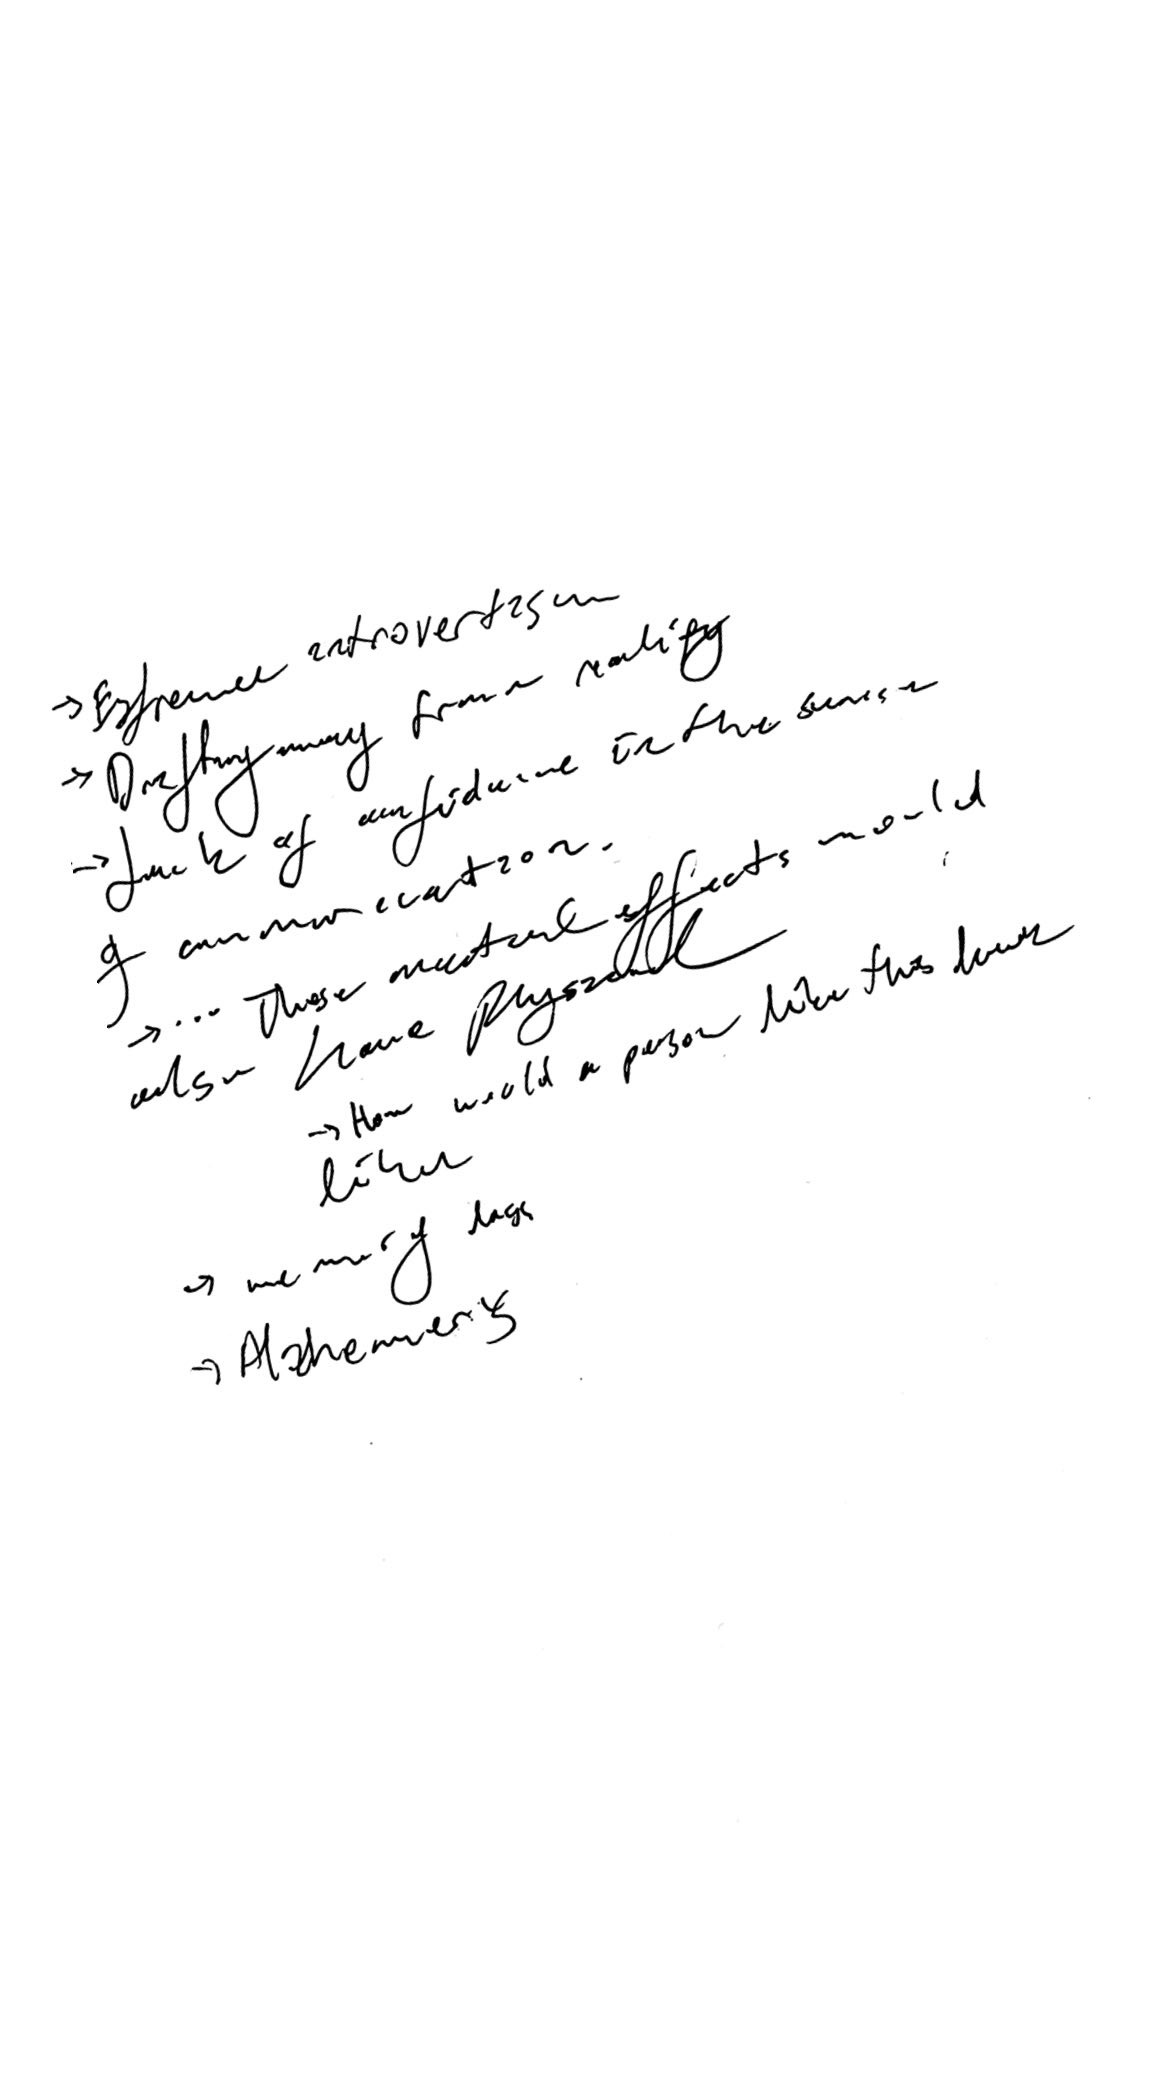 → Extreme introvertism
→ Drifting away from reality
→ Lack of confidence in the sense
of communication.
→ ... These mental effects would
also have physical
→ How would a person like this
like
→ memory loss
→ Alzheimer's